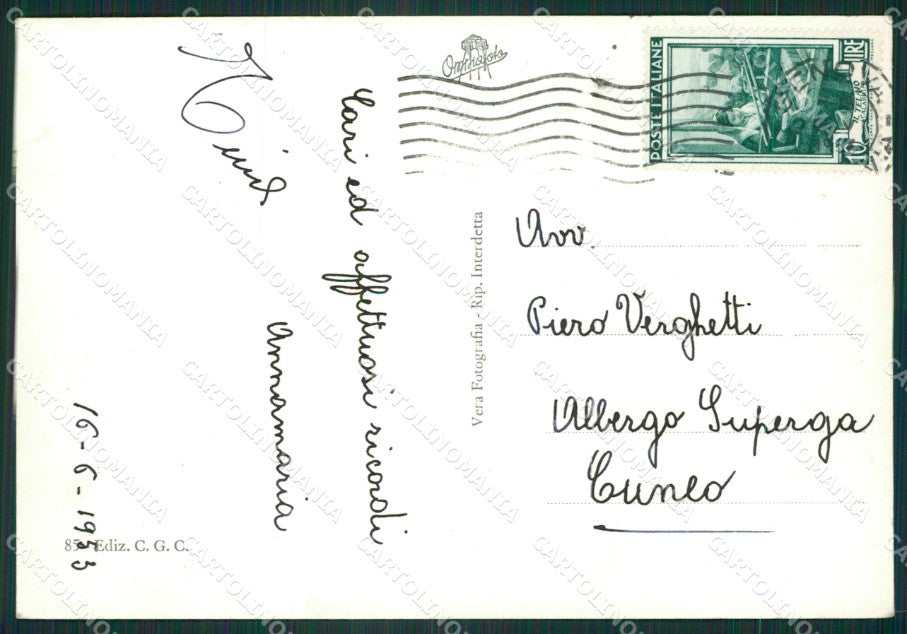 Cari ed affettuosi ricordi
Annamaria
16-6-1953
85 - Ediz. C. G. C.
Vera Fotografia - Rip. Interdetta
POSTE ITALIANE
LIRE
10
Avv.
Piero Verghetti
Albergo Superga
Cuneo
CARTOLINOMANIA